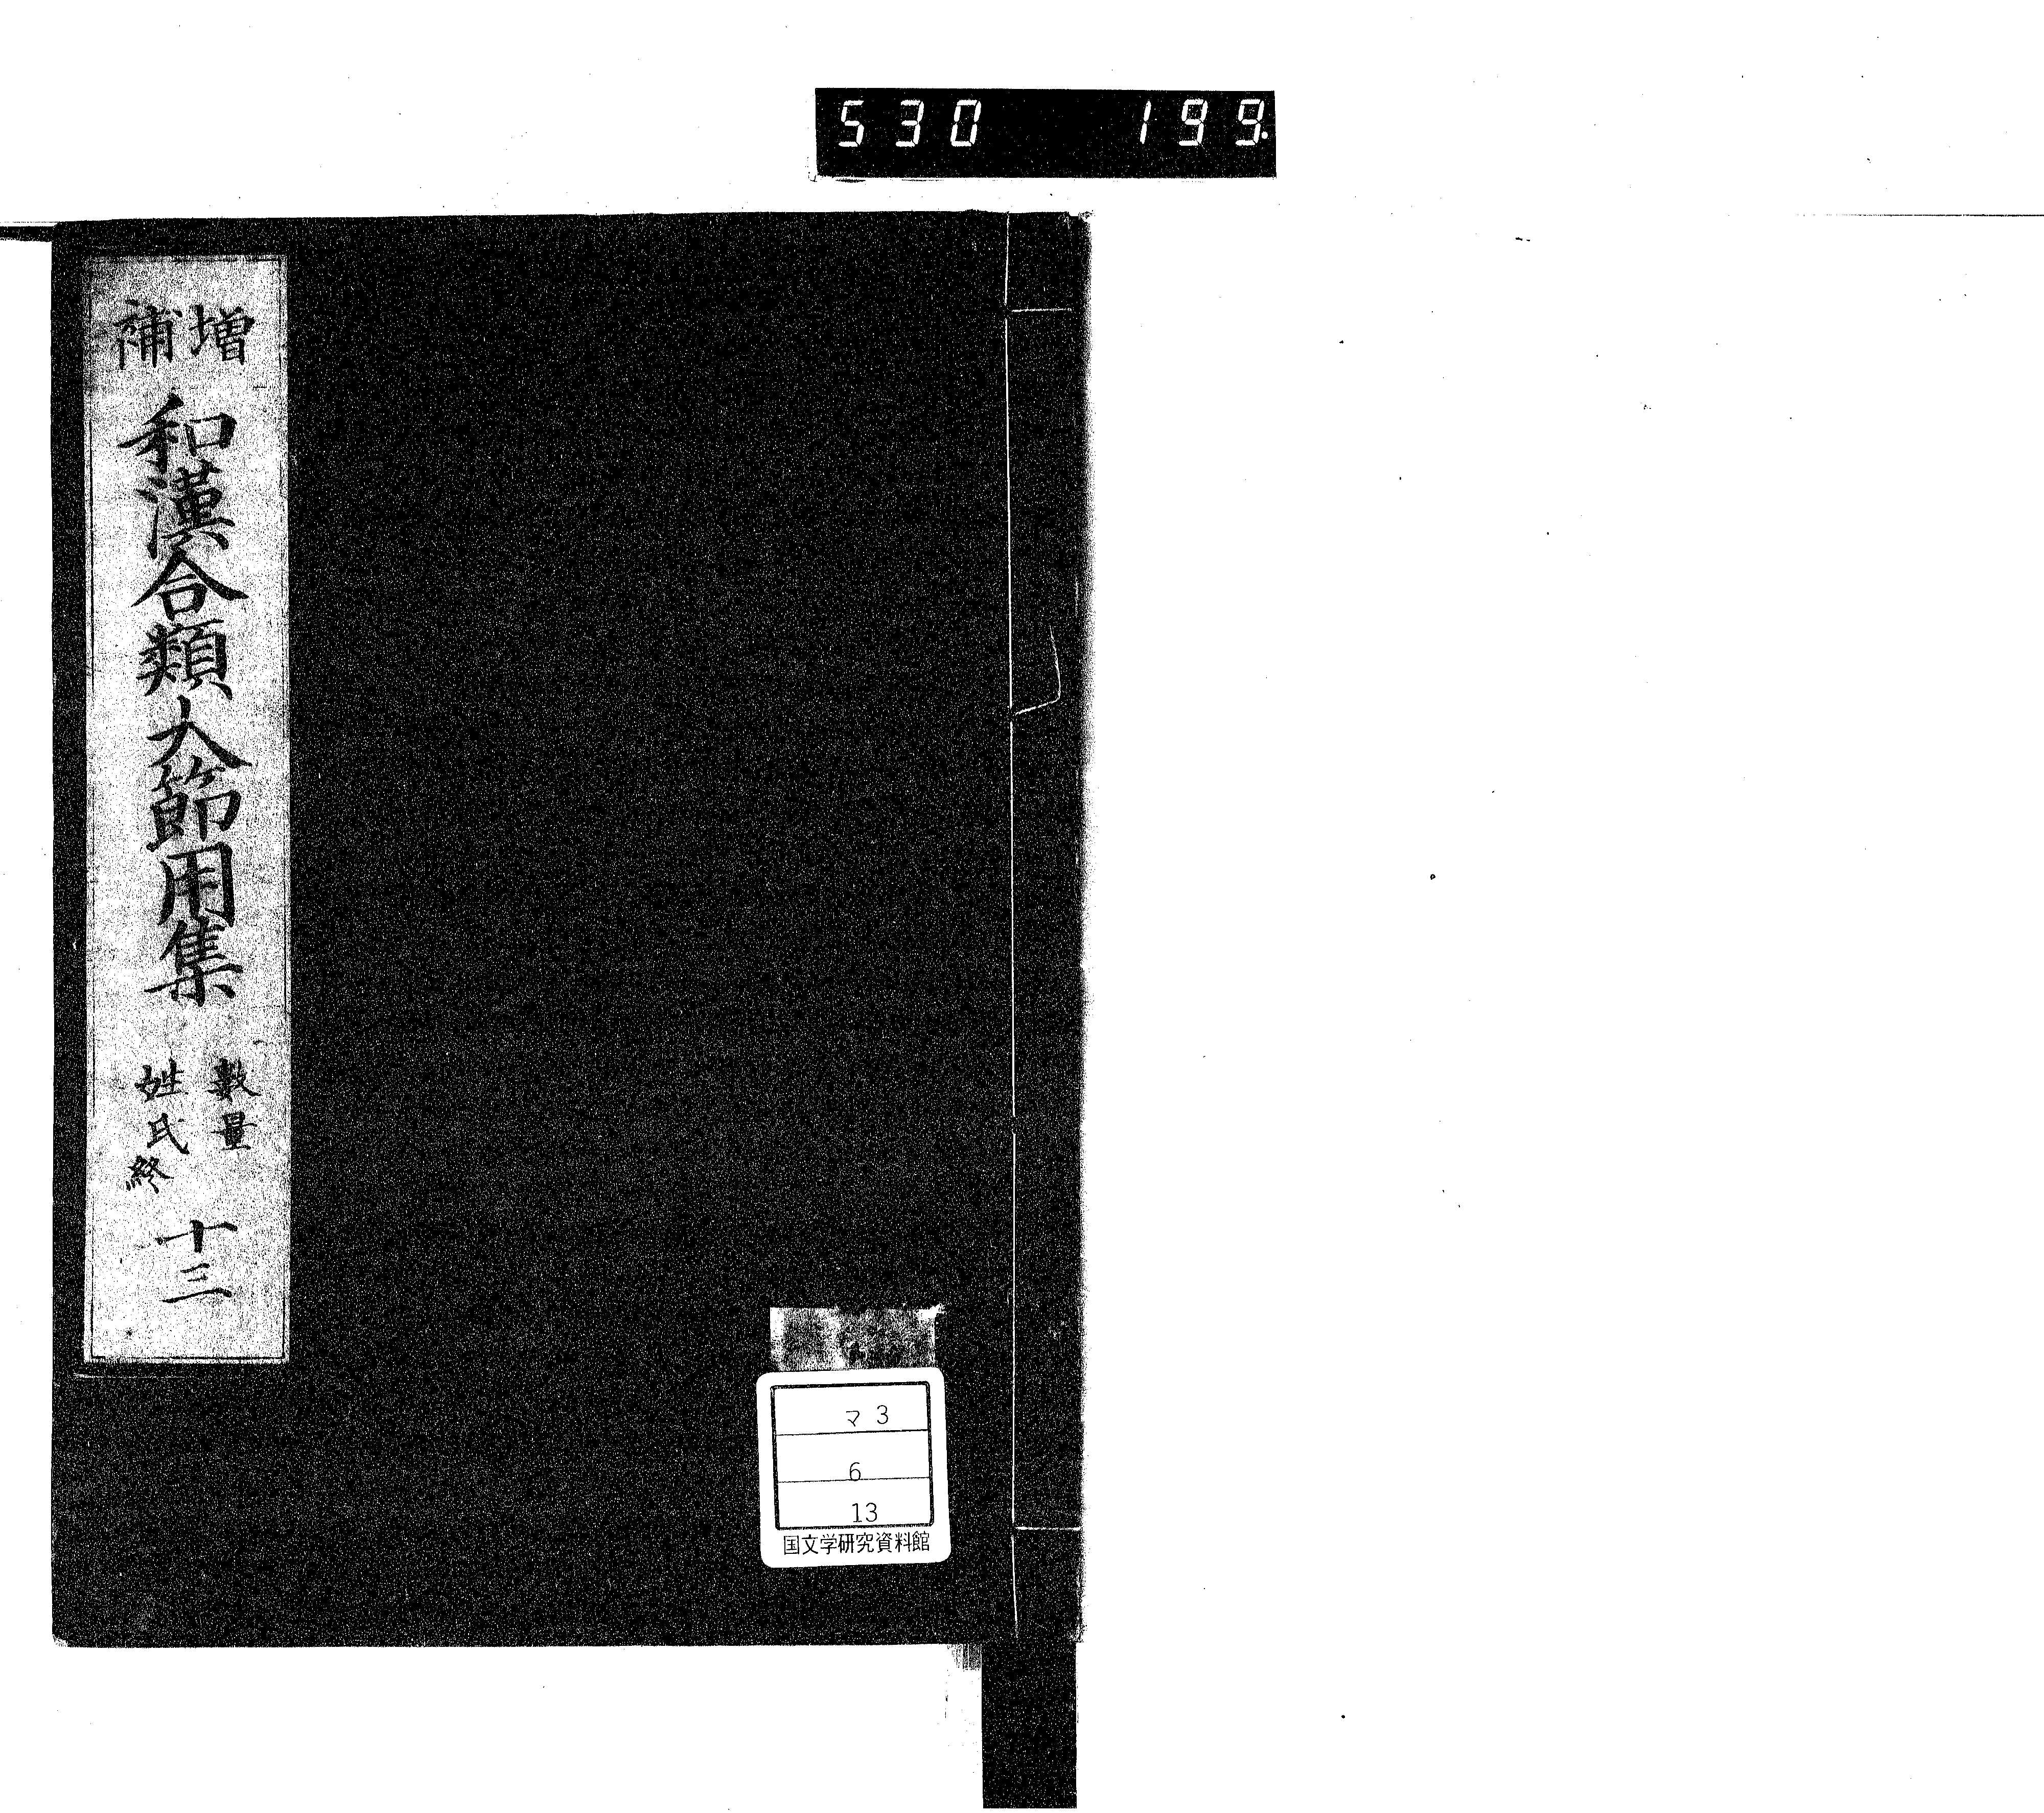 530 199.
増補
和漢合類大節用集
数量
姓氏終
十三
マ 3
6
13
国文学研究資料館